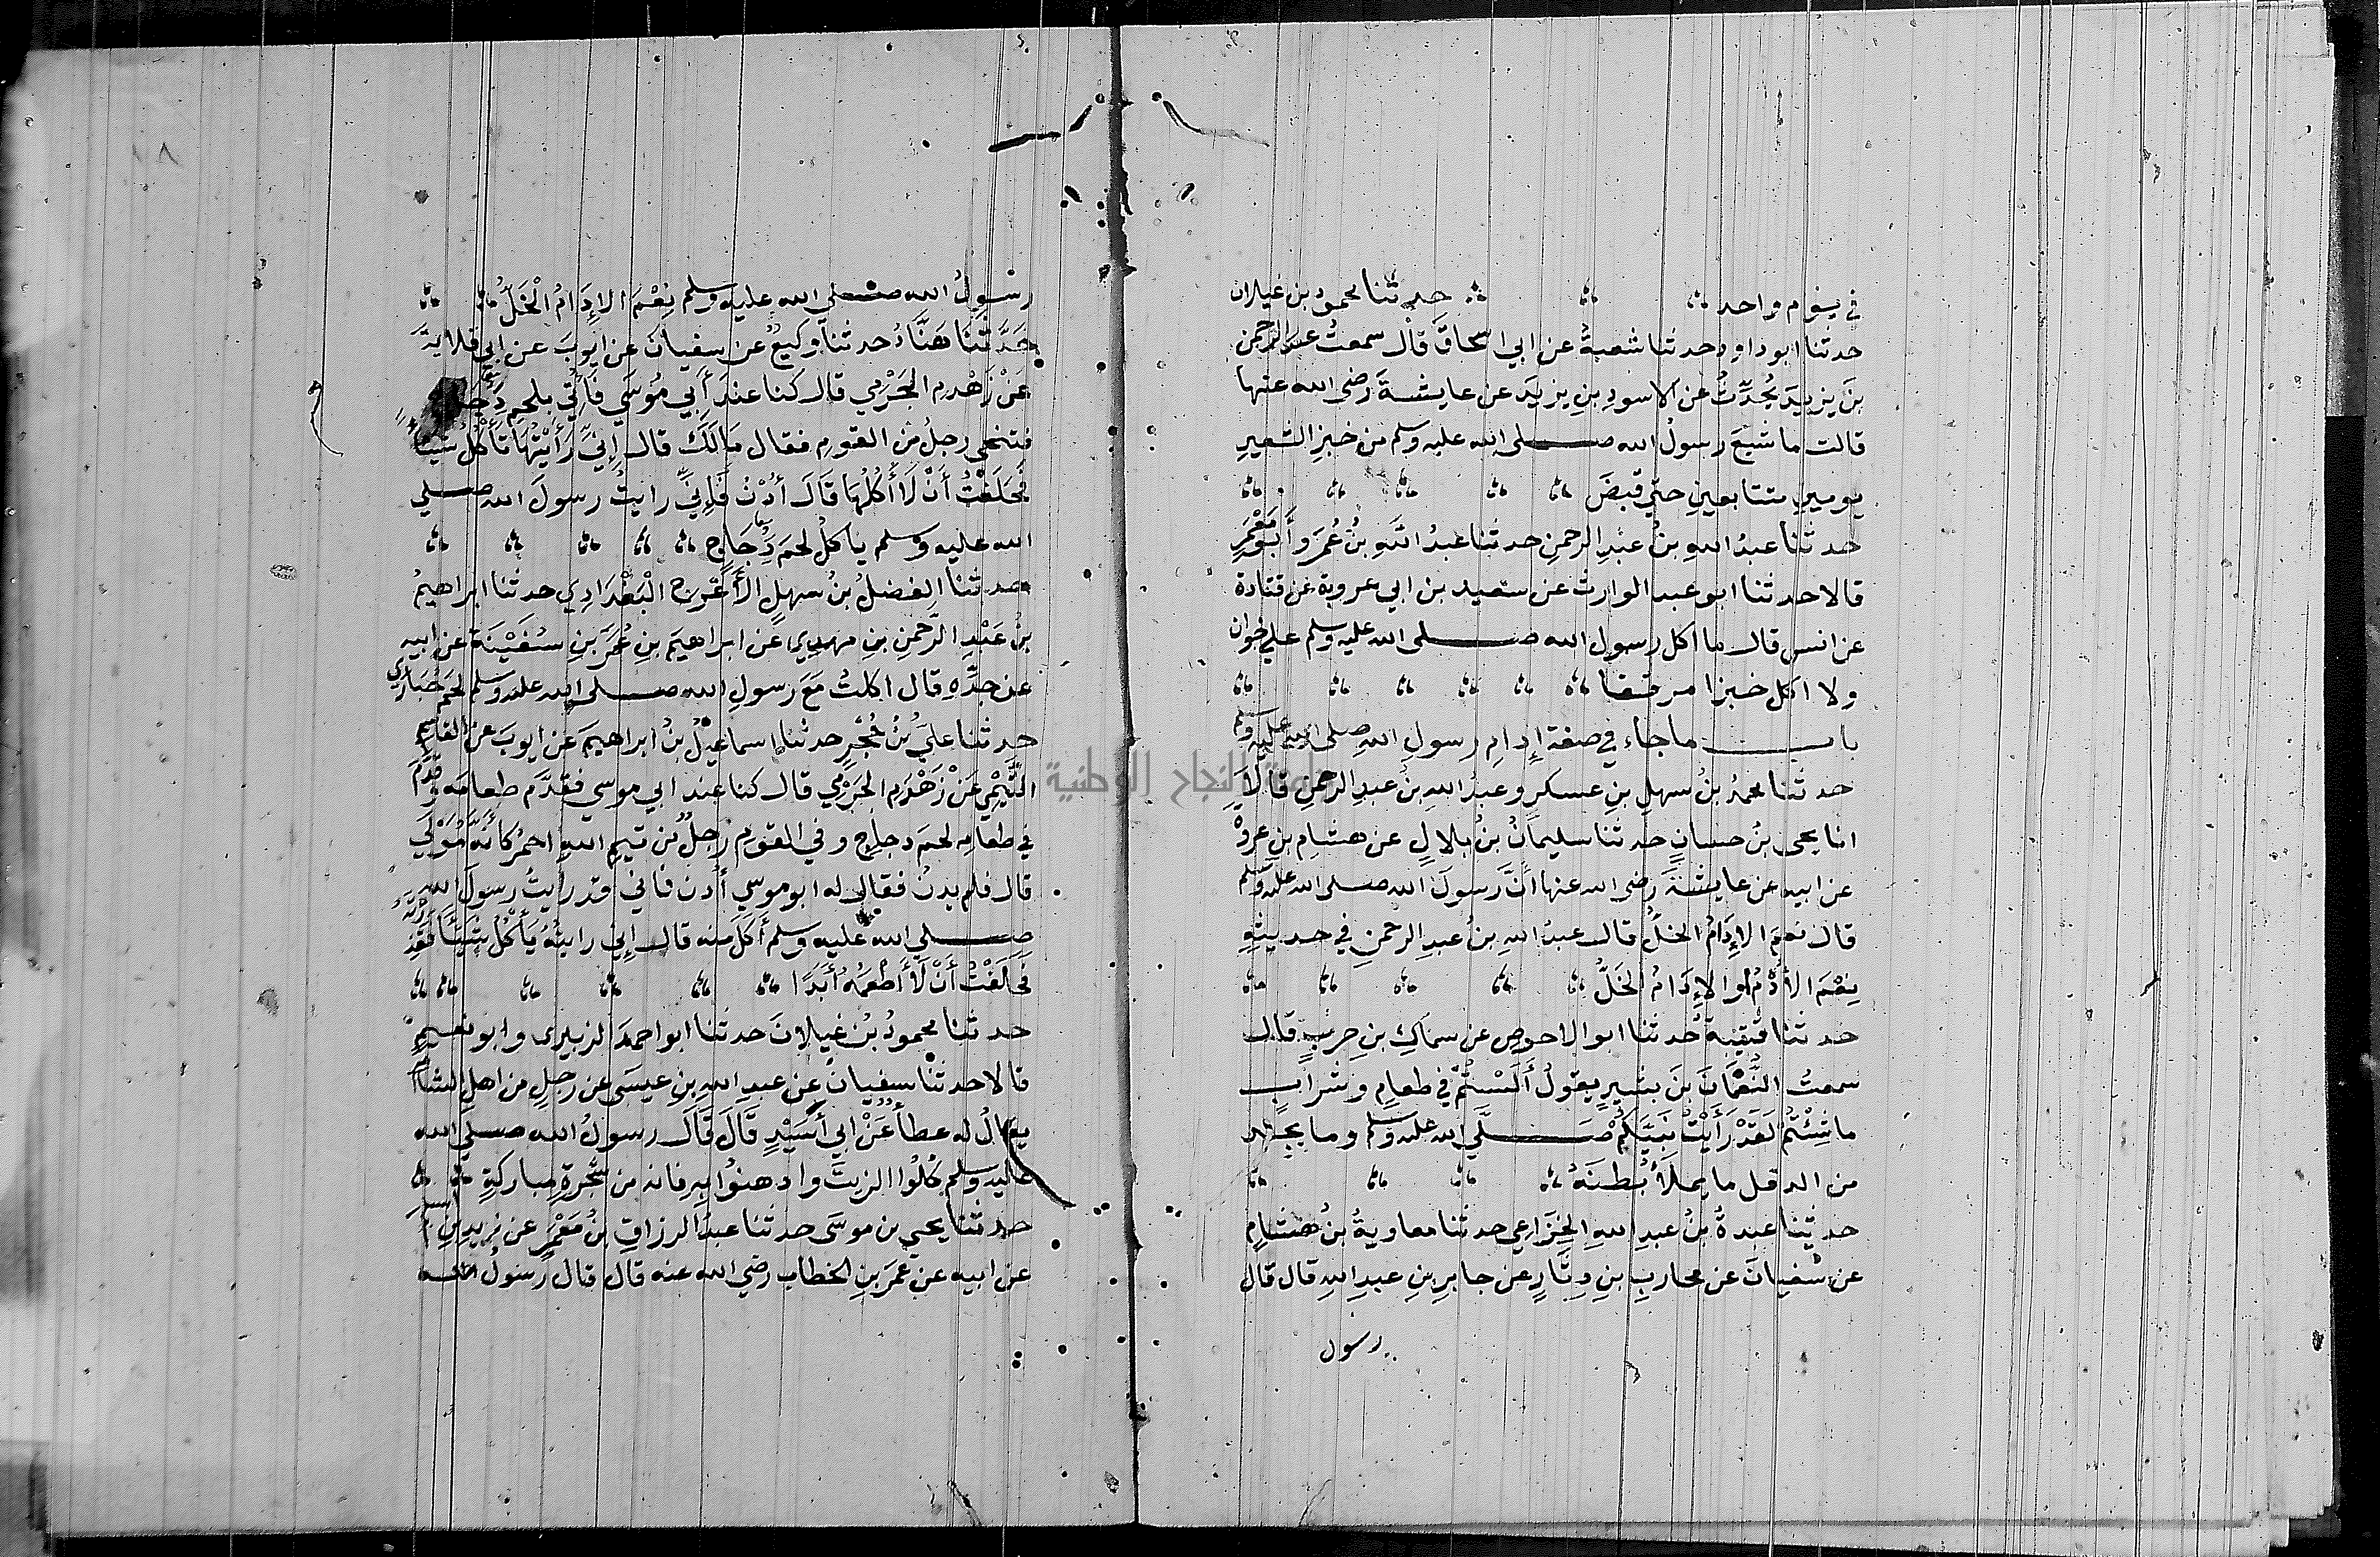 في يوم واحد حدثنا محمود بن غيلان
حدثنا ابو داود حدثنا شعبةُ عن ابي اسحاقَ قال سمعتُ عبدَ الرحمن
بنَ يزيدَ يُحدِّثُ عن الاسودِ بنِ يزيدَ عن عايشةَ رضى الله عنها
قالت ما شبعَ رسولُ الله صلى الله عليه وسلم من خبزِ الشعيرِ
يومينِ متتابعينِ حتي قُبضَ
حدثنا عبدُ اللهِ بنُ عبْدِ الرحمنِ حدثنا عبدُ اللَّهِ بنُ عُمَرَ وأَبو مَعْمَرٍ
قالا حدثنا ابو عبد الوارث عن سعيد بن ابي عروبة عن قتادة
عن انس قال ما اكل رسول الله صلى الله عليه وسلم علي خوان
ولا اكل خبزا مرققا
باب ما جاء في صفة إِدامِ رسولِ اللهِ صلى الله عليه وسلم
حدثنا محمدُ بنُ سهلِ بنِ عسكرٍ وعبدُ اللهِ بنُ عبدِ الرحمنِ قالاَ
انا يحيى بنُ حسانٍ حدثنا سليمانُ بنُ بلالٍ عن هشامِ بنِ عروةَ
عن ابيه عن عايشةَ رضى الله عنها أنَّ رسولَ الله صلى الله عليه وسلم
قال نعمَ الإِدَامُ الخلُّ قال عبدُ اللهِ بنُ عبدِ الرحمنِ في حديثِهِ
نِعْمَ الأُدُمُ او الإِدَامُ الخَلُّ
حدثنا قتيبةُ حدثنا ابو الاحوصِ عن سماكِ بنِ حربٍ قال
سمعتُ النُّعْمَانَ بنَ بشيرٍ يقولُ أَلَسْتُمْ في طعامٍ وشرابٍ
ما شِئْتُمْ لَقَدْ رَأَيْتُ نَبِيَّكُمْ صَلَّي الله عليه وسلم وما يجد
من الدقل ما يملأُ بُطنَهُ
حدثنا عبدةُ بنُ عبدِ اللهِ الخُزَاعِي حدثنا معاويةُ بنُ هشامٍ
عن سُفيانَ عن محاربِ بنِ دِثَارٍ عن جابرِ بنِ عبدِ اللهِ قال قال
رسول
رسولُ الله صلي الله عليه وسلم نِعْمَ الإِدَامُ الْخَلُّ
حَدَّثنَا هَنَّادُ حدثنا وكيعُ عن سفيانَ عن ايوبَ عن ابي قلابةَ
عَنْ زَهْدمِ الجَرْمِي قال كنا عندَ أَبي مُوسَي فَأُتِيَ بلحمِ دَجَاجٍ
فتنحَى رجلُ من القومِ فقال مَا لَكَ قال إِنِّي رَأَيْتُهَا تَأْكُلُ شَيْئا
فحَلَفْتُ أَنْ لَا أكُلهَا قَالَ أُدْنُ فَإِنِّي رايتُ رسولَ الله صلي
الله عليه وسلم ياكلُ لحمَ دَجَاجٍ
حدثنا الفضلُ بنُ سهلٍ الأعْرجُ الْبَغْدَادِي حدثنا ابراهيمُ
بنُ عَبْدِ الرَّحمنِ بنِ مهديٍ عن ابراهيمَ بنِ عُمَرَ بنِ سَفِيْنَةَ عن ابيه
عن جدِّهِ قال اكلتُ مَعَ رسولِ الله صلى الله عليه وسلم لحمَ حُبَارَي
حدثنا عليُّ بنُ حُجْرٍ حدثنا إسماعيلُ بنُ ابراهيمَ عن ايوبَ عن القاسِمِ
التَّيْمِي عَنْ زَهْدَمِ الجَرْمِي قال كنا عند ابي موسي فقدَّم طعامَه وقُدِّمَ
في طعامِهِ لحمَ دجاجٍ وفي القومِ رَجلٌ من تيمِ اللهِ احمرُ كأَنَّه مَوْلَي
قال فلم يدنُ فقال له ابو موسي أُدنُ فاني قد رأيتُ رسولَ الله
صلي الله عليه وسلم أَكَلَ منه قال إني رايتُهُ يَأْكُلُ شَيْئًا فَقَذِرْتُهُ
فَحَلَفْتُ أَنْ لَا أَطْعَمَهُ أَبَدًا
حدثنا محمودُ بنُ غيلانَ حدثنا ابو احمدَ الزبيري وابو نعيمٍ
قالا حدثنا سفيانُ عن عبدِ اللهِ بنِ عيسَى عن رجلٍ من اهلِ الشامِ
يقالُ له عطاءُ عَنْ ابي أَسَيْدٍ قَالَ قَالَ رسولُ الله صلي الله
عليه وسلم كُلُوا الزيتَ وادهنُوا بِهِ فانه من شجرةٍ مباركةٍ
حدثنا يحيي بن موسَى حدثنا عبدُ الرزاقِ بنُ مَعْمَرٍ عن زيدِ بنِ اسلم
عن ابيه عن عمَرَ بنِ الخطاب رضي الله عنه قال قال رسولُ الله
جامعة النجاح الوطنية